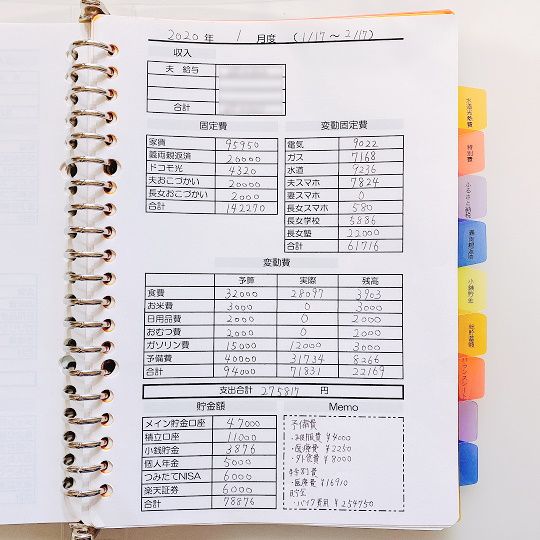 2020 年 1 月度 (1/17～2/17)
収入
夫 給与
合計
固定費
家賃 95950
義両親返済 20000
ドコモ光 4320
夫おこづかい 20000
長女おこづかい 2000
合計 142270
変動固定費
電気 9022
ガス 7168
水道 9236
夫スマホ 7824
妻スマホ 0
長女スマホ 580
長女学校 5886
長女塾 22000
合計 61716
変動費
予算 実際 残高
食費 32000 28097 3903
お米費 3000 0 3000
日用品費 2000 0 2000
おむつ費 2000 0 2000
ガソリン費 15000 12000 3000
予備費 40000 31734 8266
合計 94000 71831 22169
支出合計 275817 円
貯金額
メイン貯金口座 47000
積立口座 11000
小銭貯金 3876
個人年金 5000
つみたてNISA 6000
楽天証券 6000
合計 78876
Memo
予備費
・被服費 ¥4000
・医療費 ¥2250
・外食費 ¥8000
特別費
・医療費 ¥16910
貯金
・バイク費用 ¥254750
水道光熱費
特別費
ふるさと納税
義両親返済
小銭貯金
総貯蓄額
バランスシート